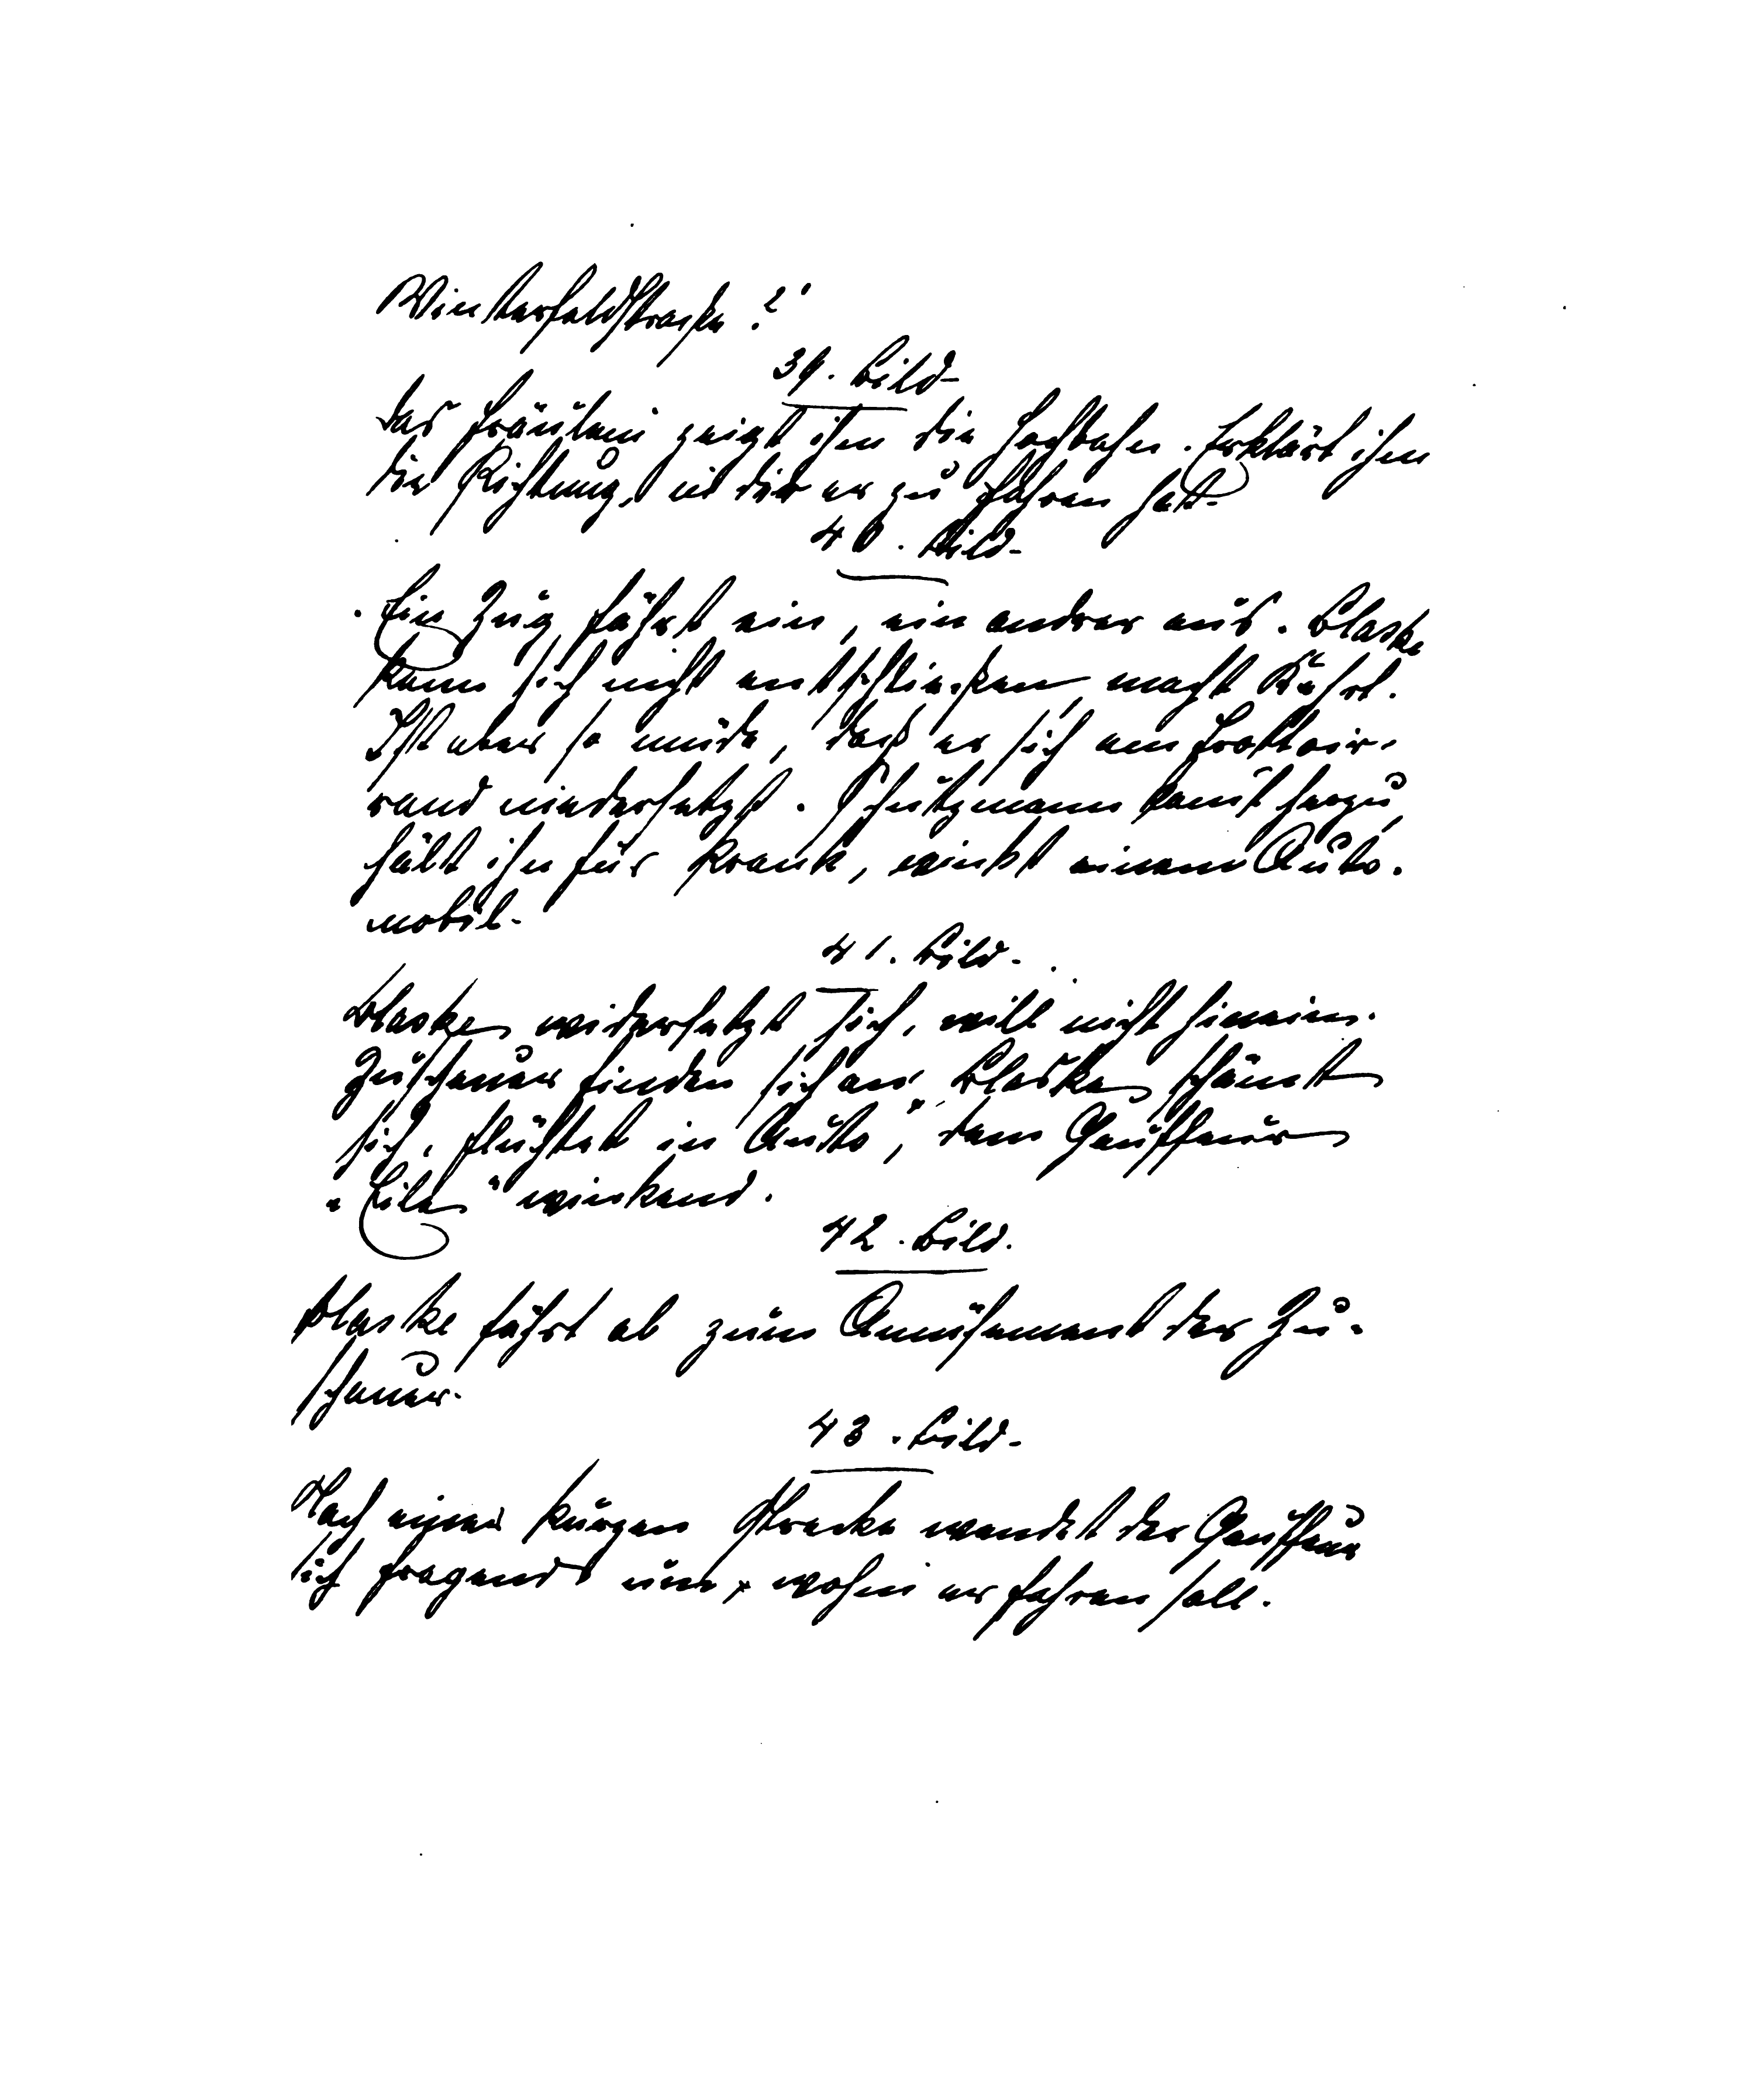 Winterfeldstraße?"
39. Bild-
Das Fräulein zeigt ihm die Hochbahn. Erklärt ihm
die Richtung, in der er zu fahren hat.
40. Bild-
Ein Zug fährt ein, ein andrer aus. Blaske
kann sich nicht entschließen, macht Kehrt.
Ist aber so müde, daß er sich am Trottoir-
rand niedersetzt. Schutzmann komt herzu,
hält ihn für krank, winkt einem Auto-
mobil-
41. Bild-
Blaske widersetzt sich, will nicht hinein.
Zuschauer finden sich an, Blaske schämt
sich, flüchtet in Auto, dem Chauffeur
"Eile" winkend.
42. Bild.
Blaske fährt ab zum Amüsement der Zu-
schauer.
43. Bild-
Nach einer kurzen Strecke wendet der Chauffeur
sich fragend um, wohin er fahren soll.